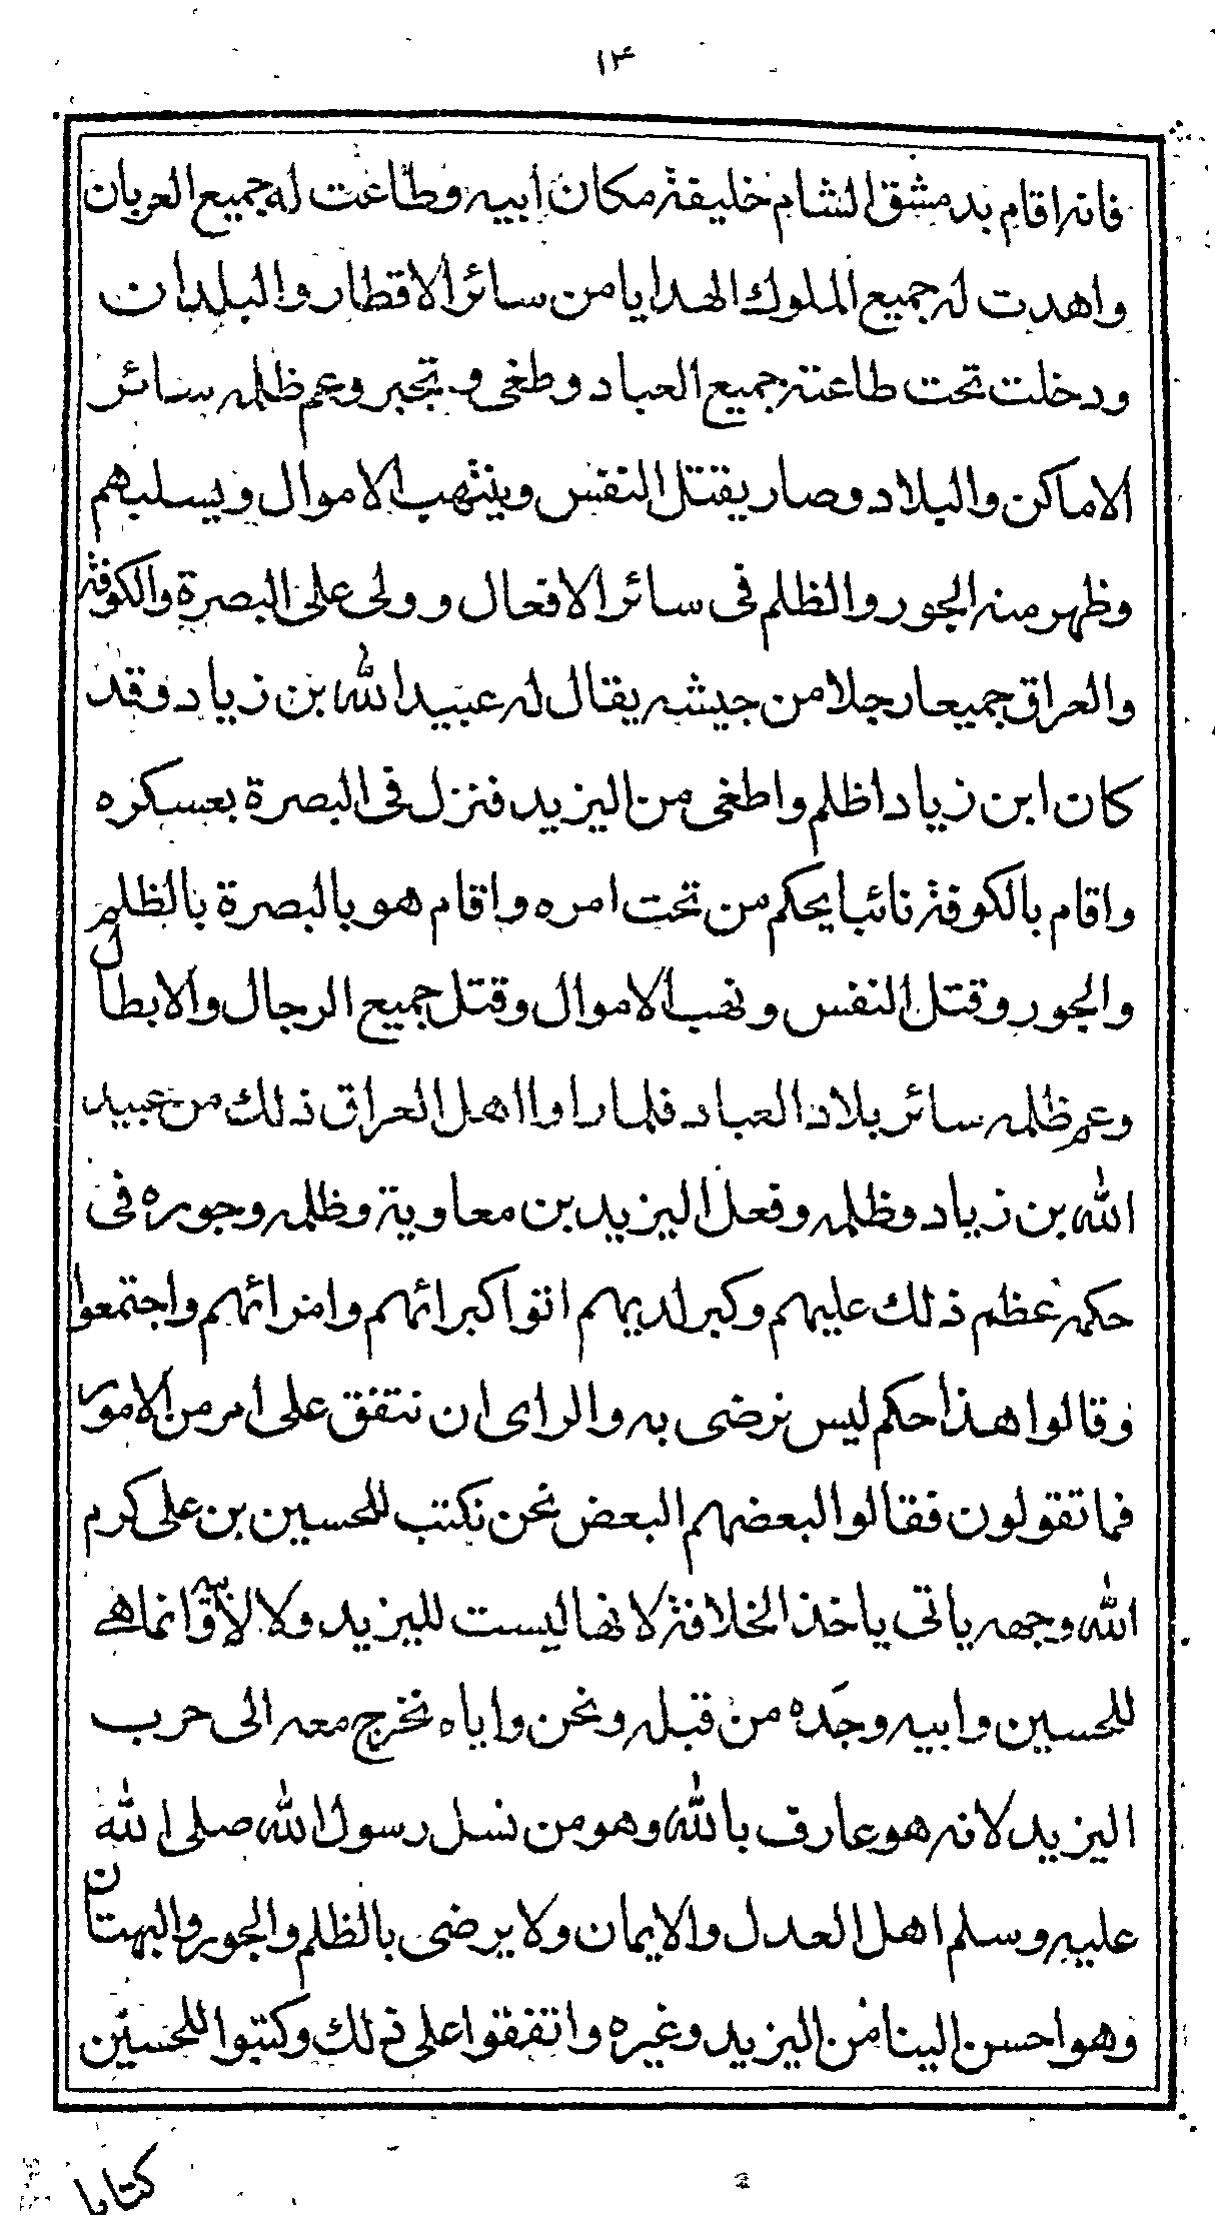 ١٤
فانه اقام بدمشق الشام خليفة مكان ابيه وطاعت له جميع العربان
واهدت له جميع الملوك الهدايا من سائر الاقطار والبلدان
ودخلت تحت طاعته جميع العباد وطغى وتجبر وعم ظلمه سائر
الاماكن والبلاد وصار يقتل النفس وينهب الاموال ويسلبهم
وظهر منه الجور والظلم فى سائر الافعال وولى على البصرة والكوفة
والعراق جميعا رجلا من جيشه يقال له عبيد الله بن زياد وقد
كان ابن زياد اظلم واطغى من اليزيد فنزل فى البصرة بعسكره
واقام بالكوفة نائبا يحكم من تحت امره واقام هو بالبصرة بالظلم
والجور وقتل النفس ونهب الاموال وقتل جميع الرجال والابطال
وعم ظلمه سائر بلاد العباد فلما راوا اهل العراق ذلك من عبيد
الله بن زياد وظلمه وفعل اليزيد بن معاوية وظلمه وجوره فى
حكمه عظم ذلك عليهم وكبر لديهم اتوا كبرائهم وامرائهم واجتمعوا
وقالوا هذا حكم ليس نرضى به والراى ان نتفق على امر من الامور
فما تقولون فقالوا لبعضهم البعض نحن نكتب للحسين بن على كرم
الله وجهه ياتى ياخذ الخلافة لانها ليست لليزيد ولا لابيه وانما هے
للحسين وابيه وجَده من قبله ونحن واياه نخرج معه الى حرب
اليزيد لانه هو عارف بالله وهو من نسل رسول الله صلى الله
عليه وسلم اهل العدل والايمان ولا يرضى بالظلم والجور والبهتان
وهو احسن الينا من اليزيد وغيره واتفقوا على ذلك وكتبوا للحسين
كتابا